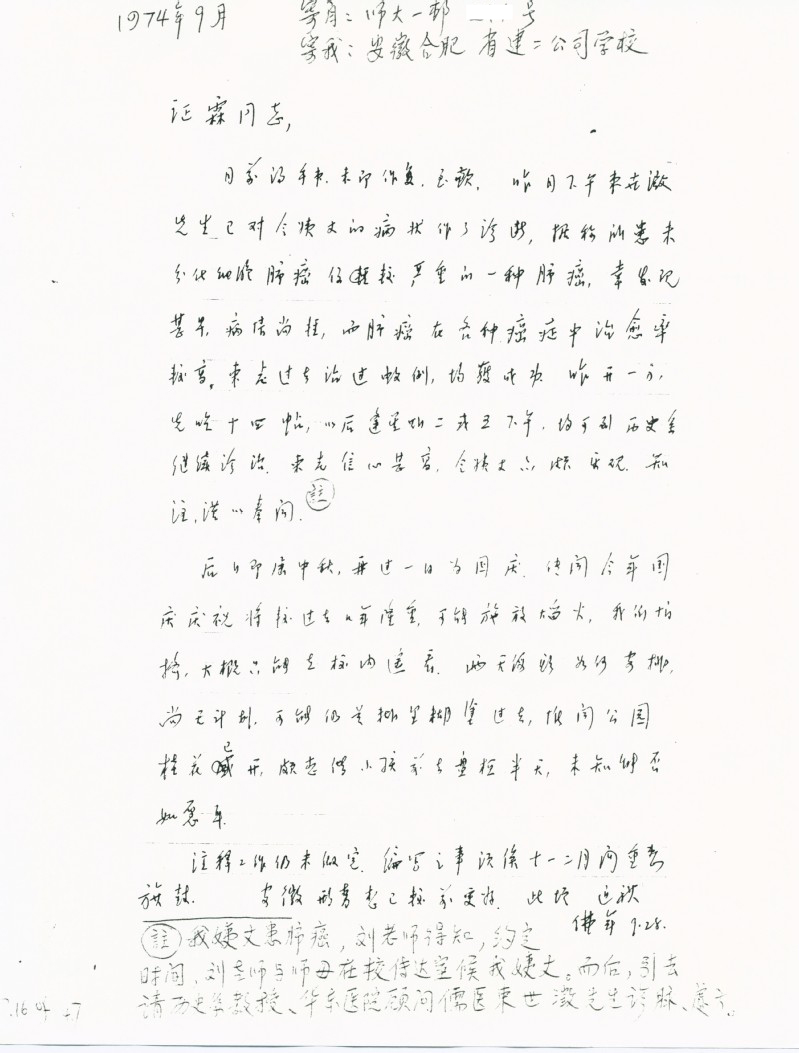 1974年9月
寄自：师大一邨 号
寄我：安徽合肥 省建二公司学校
证霖同志，
日前得手束，未即作复，至歉。昨日下午束世澂
先生已对令姨丈的病状作了诊断，据称所患未
分化细胞肺癌仅较严重的一种肺癌，幸发现
甚早，病情尚轻，而肺癌在各种癌症中治愈率
较高。束老过去治过数例，均获成功。昨开一方，
先吃十四帖，以后逢星期二或五下午，均可到历史系
继续诊治。束老信心甚高，令姨丈亦颇乐观。知
注，谨以奉闻。註
后日即届中秋，再过一日为国庆。传闻今年国
庆庆祝将较过去几年隆重，可能施放焰火，我们怕
挤，大概只能去校内遥看。两天假期如何安排，
尚无计划，可能仍是糊里糊涂过去，惟闻公园
桂花已盛开，颇想偕小孩前去盘桓半天，未知能否
如愿耳。
注释工作仍未做完，编写之事须俟十一二月间重整
旗鼓。安徽形势想已较前更好。此颂 近祺
佛年 9.28.
註 我姨丈患肺癌，刘老师得知，约定
时间，刘老师与师母在校传达室候我姨丈。而后，引去
请历史学教授、华东医院顾问儒医束世澂先生诊脉、处方。